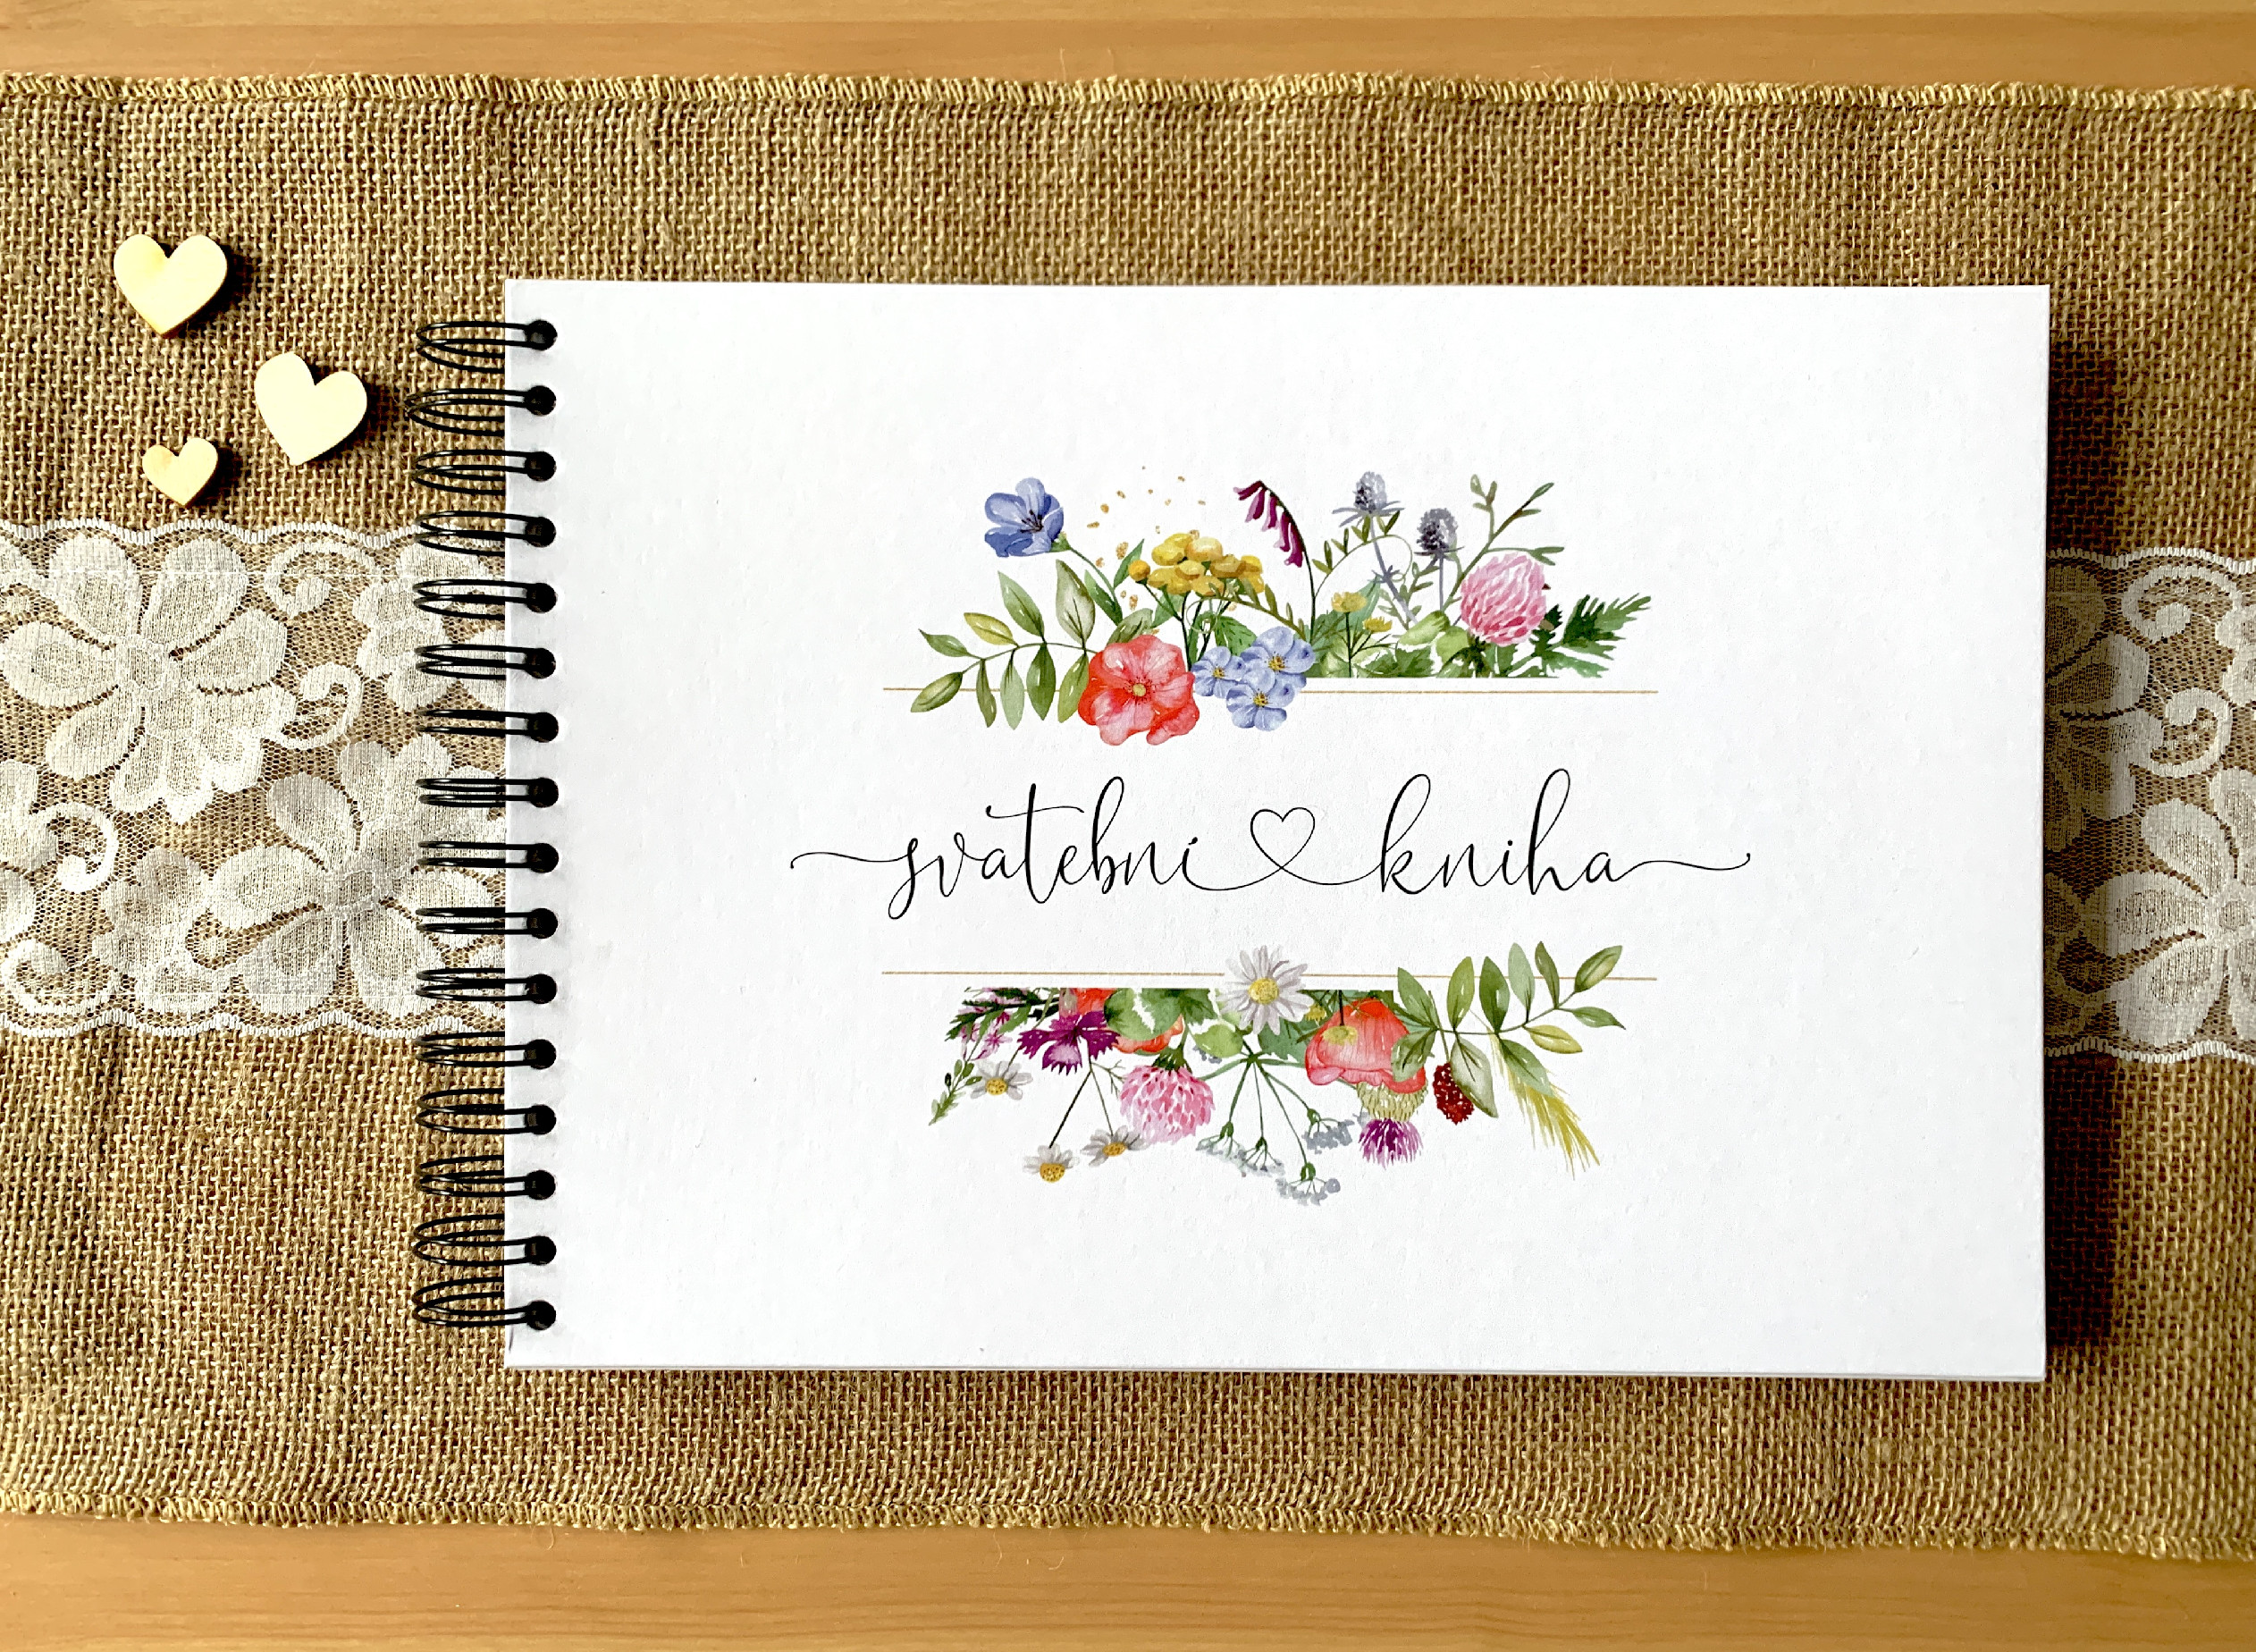 svatební kniha